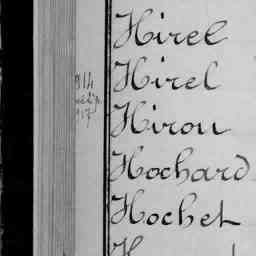 Hirel
Hirel
Hirou
Hochard
Hochet